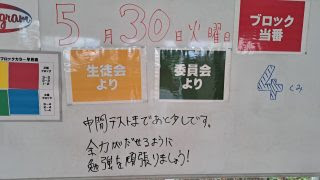 gram
5月30日火曜日
ブロック
当番
ブロックカラー早見表
生徒会
より
委員会
より
くみ
中間テストまであと少しです。
全力がだせるように
勉強を頑張りましょう!